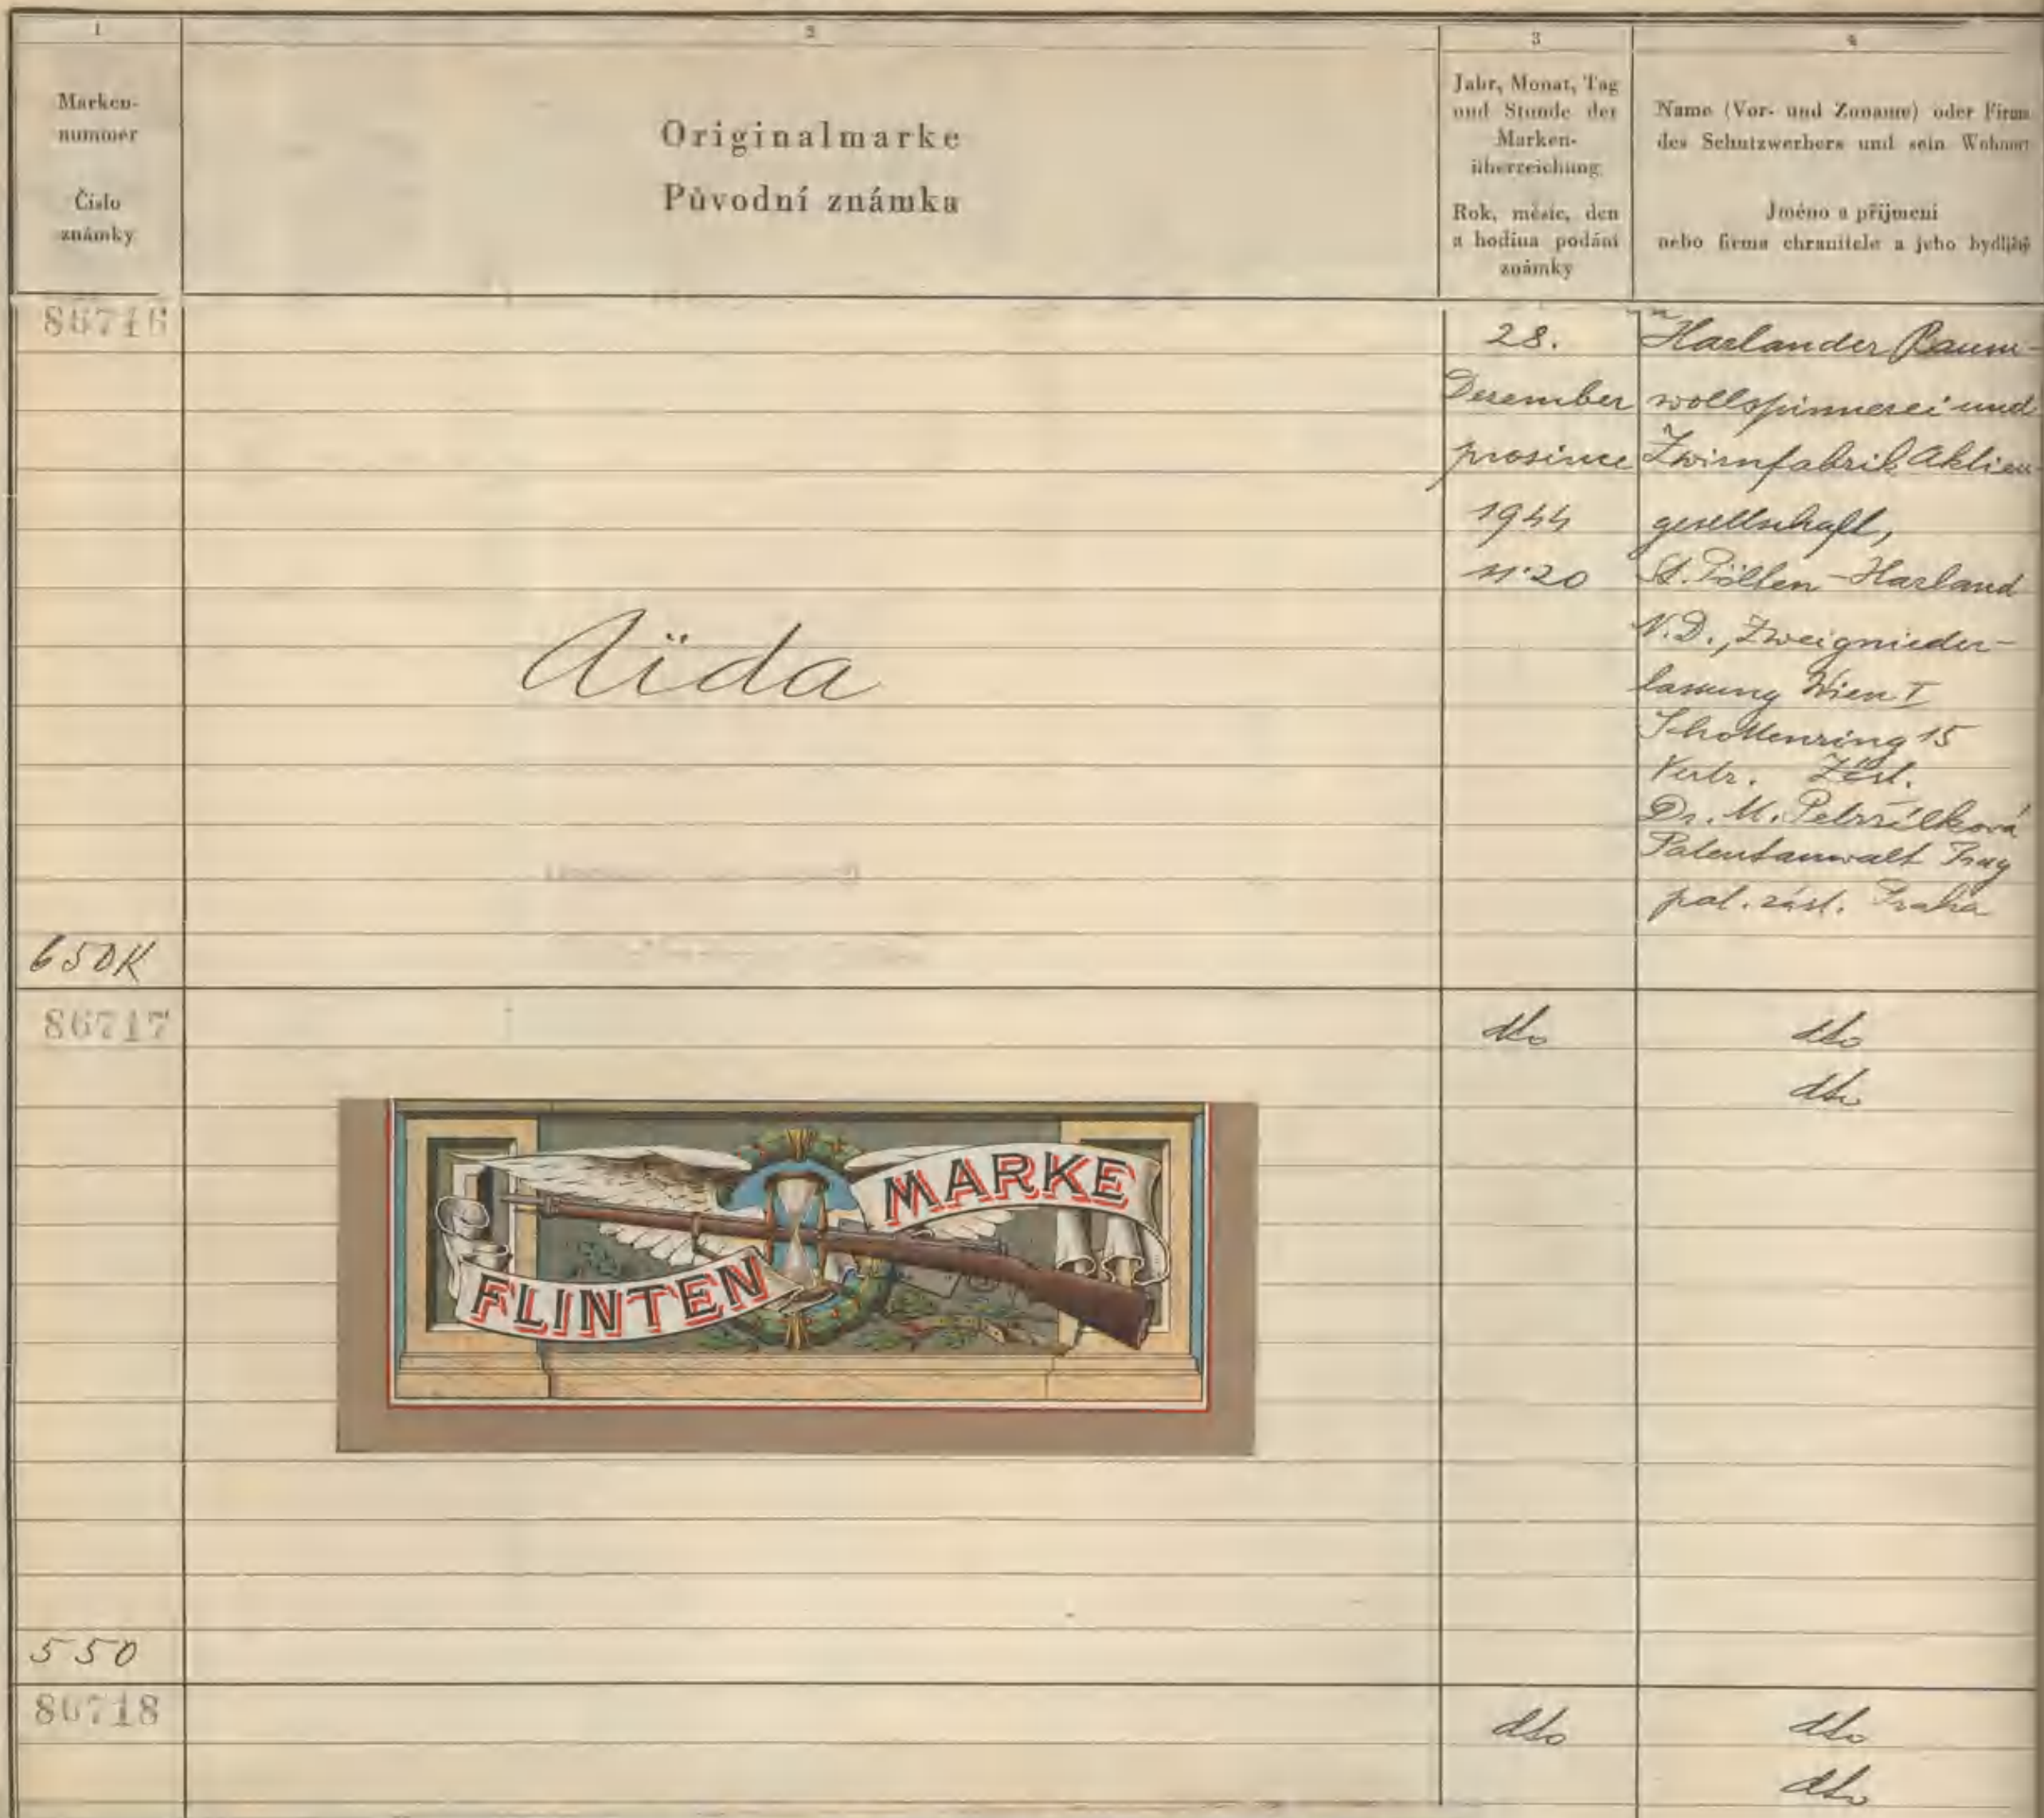 1
Marken-
nummer
Číslo
známky
2
Originalmarke
Původní známka
3
Jahr, Monat, Tag
und Stunde der
Marken-
überreichung
Rok, měsíc, den
a hodina podání
známky
4
Name (Vor- und Zuname) oder Firma
des Schutzwerbers und sein Wohnort
Jméno a příjmení
nebo firma chranitele a jeho bydliště
86716
Aïda
28.
Dezember
prosince
1944
11·20
Harlander Baum-
wollspinnerei und
Zwirnfabrik Aktien-
gesellschaft,
St. Pölten-Harland
N.D., Zweignieder-
lassung Wien I
Schottenring 15
Vertr. Zást.
Dr. M. Petrzílková
Patentanwalt Prag
pat. zást. Praha
650K
86717
FLINTEN
MARKE
dto
dto
dto
550
86718
dto
dto
dto